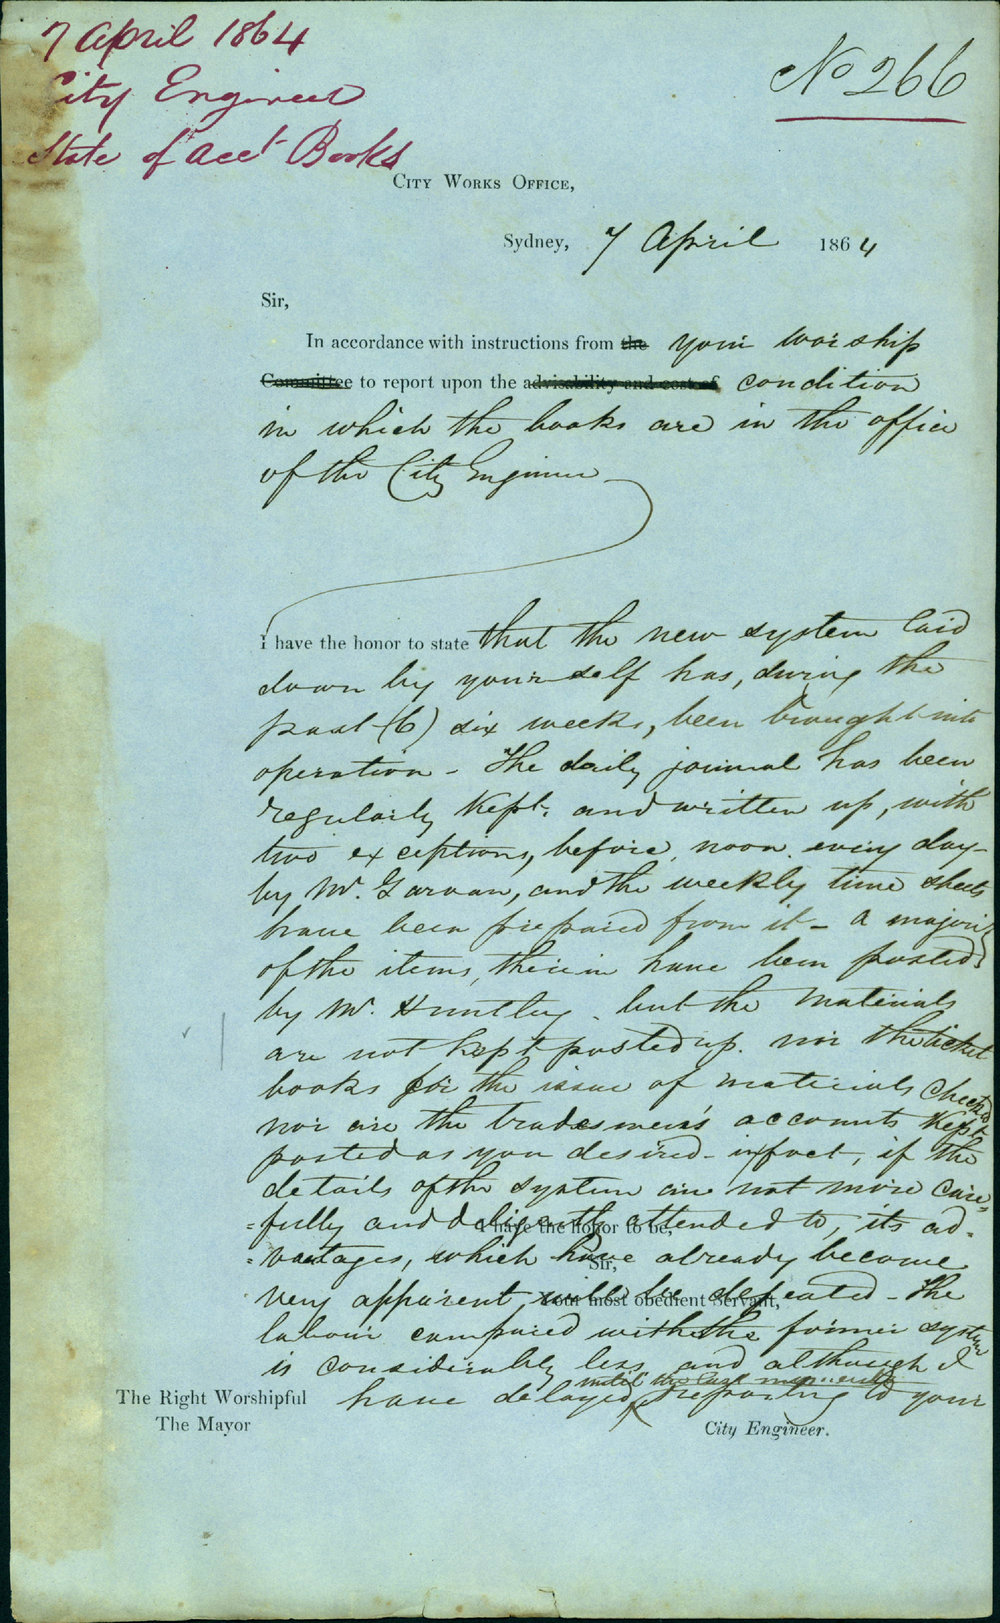 7 April 1864
City Engineer
State of Acct Books
No 266
City Works Office,
Sydney, 7 April 1864
Sir,
In accordance with instructions from the your worship
Committee to report upon the advisability and cost of condition
in which the books are in the office
of the City Engineer
I have the honor to state that the new system laid
down by yourself has, during the
past (6) six weeks, been brought into
operation - The daily journal has been
regularly kept, and written up, with
two exceptions, before noon every day -
by Mr. Garvan, and the weekly time sheets
have been prepared from it - a majority
of the items, therein have been posted
by Mr. Huntley - but the materials
are not kept posted up. nor the ticket
books for the issue of materials checked
nor are the tradesmen's accounts kept
posted as you desired - in fact, if the
details of the system are not more care=
=fully and diligently attended to, its ad=
I have the honor to be,
=vantages, which have already become
Sir,
very apparent, will be defeated - The
Your most obedient Servant,
labour compared with the former system
is considerably less, and although I
until the last moment
have delayed reporting to your
The Right Worshipful
The Mayor
City Engineer.